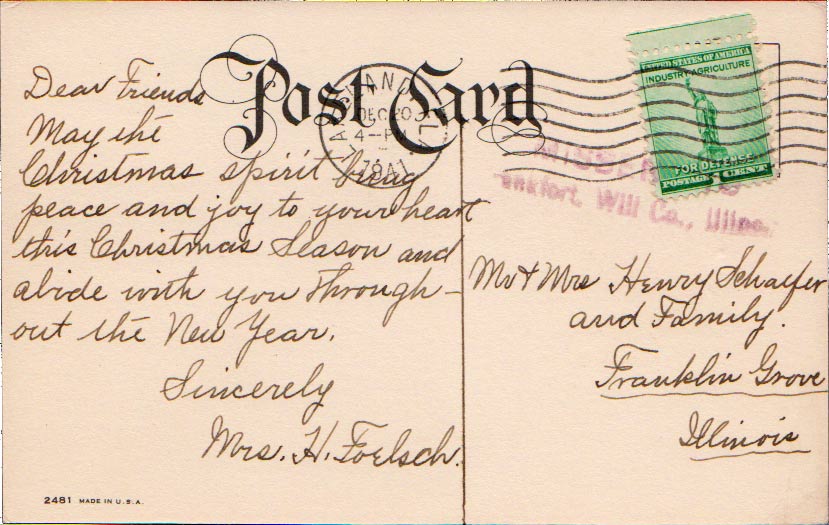 Post Card
Dear Friends
May the
Christmas spirit bring
peace and joy to your heart
this Christmas Season and
abide with you through-
out the New Year.
Sincerely
Mrs. H. Foelsch.
2481 MADE IN U.S.A.
DEC 20
4-PM
1941
UNITED STATES OF AMERICA
INDUSTRY AGRICULTURE
FOR DEFENSE
POSTAGE 1 CENT
Will Co., Illinois
Mr & Mrs Henry Schaefer
and Family.
Franklin Grove
Illinois